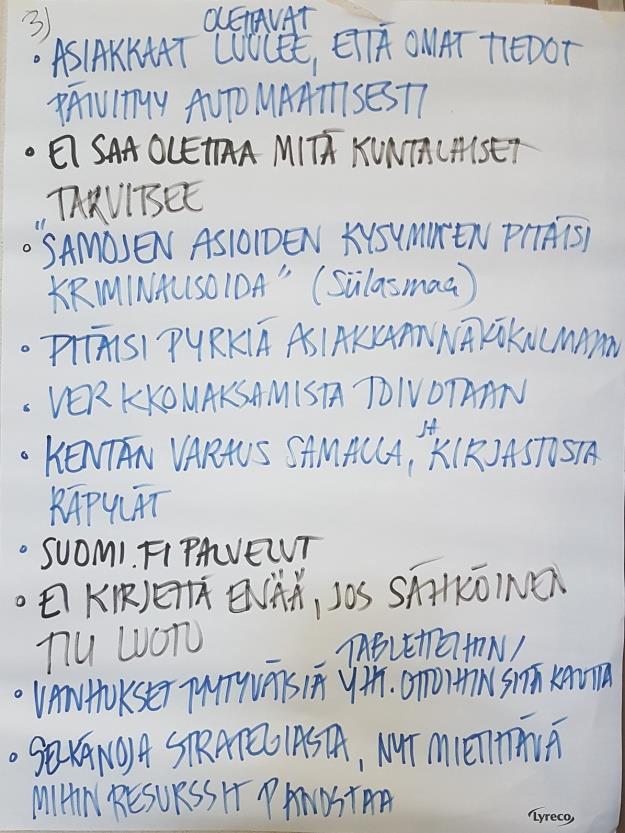 3)
OLETTAVAT
• ASIAKKAAT LUULEE, ETTÄ OMAT TIEDOT
PÄIVITTYY AUTOMAATTISESTI
• EI SAA OLETTAA MITÄ KUNTALAISET
TARVITSEE
• "SAMOJEN ASIOIDEN KYSYMINEN PITÄISI
KRIMINALISOIDA" (Siilasmaa)
• PITÄISI PYRKIÄ ASIAKKAAN NÄKÖKULMAAN
• VERKKOMAKSAMISTA TOIVOTAAN
• KENTÄN VARAUS SAMALLA, JA KIRJASTOSTA
RÄPYLÄT
• SUOMI.FI PALVELUT
• EI KIRJETTÄ ENÄÄ, JOS SÄHKÖINEN
TILI LUOTU
TABLETTEIHIN/
• VANHUKSET TYYTYVÄISIÄ YHT.OTTOIHIN SITÄ KAUTTA
• SELKÄNOJA STRATEGIASTA, NYT MIETITTÄVÄ
MIHIN RESURSSIT PANOSTAA
Lyreco